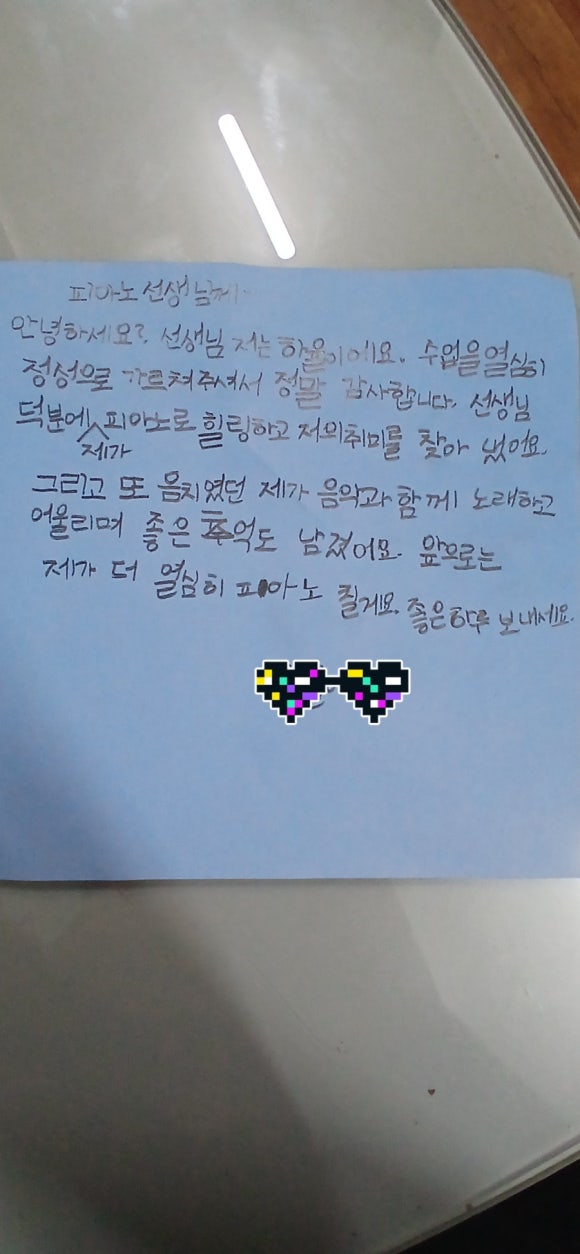 피아노 선생님께
안녕하세요?, 선생님 저는 하율이에요. 수업을 열심히
정성으로 가르쳐주셔서 정말 감사합니다. 선생님
덕분에 제가 피아노로 힐링하고 저의 취미를 찾아 냈어요.
그리고 또 음치였던 제가 음악과 함께 노래하고
어울리며 좋은 추억도 남겼어요. 앞으로는
제가 더 열심히 피아노 칠게요. 좋은하루 보내세요.